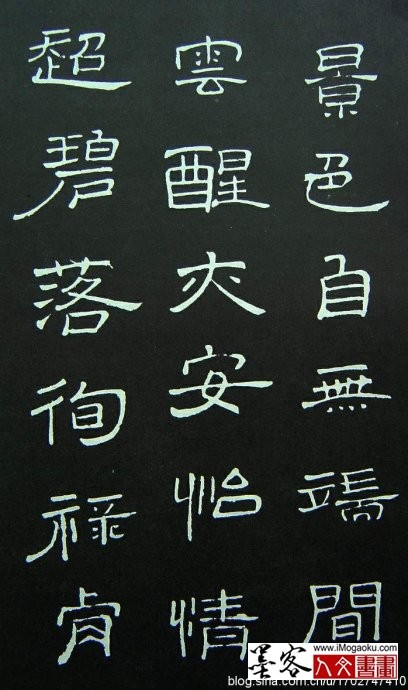 景色自無端間
雲醒安怡情
超碧落徇祿肯
墨客
www.iMogaoku.com
人文書畫
blog.sina.com.cn/u/1702747410